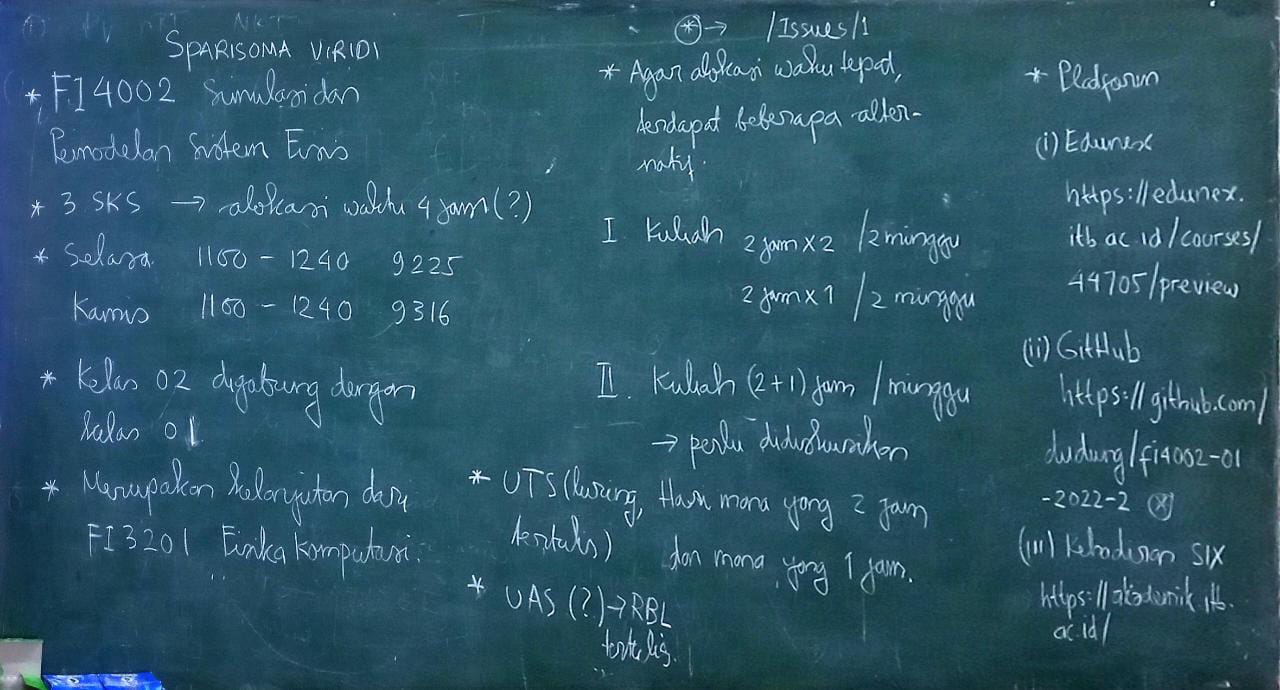 SPARISOMA VIRIDI
* FI4002 Simulasi dan
Pemodelan Sistem Fisis
* 3 SKS → alokasi waktu 4 jam (?)
* Selasa 1100 - 1240 9225
Kamis 1100 - 1240 9316
* Kelas 02 digabung dengan
kelas 01
* Merupakan kelanjutan dari
FI3201 Fisika Komputasi.
⊛ → /Issues/1
* Agar alokasi waktu tepat,
terdapat beberapa alter-
natif.
I Kuliah 2 jam x 2 /2 minggu
2 jam x 1 / 2 minggu
II. Kuliah (2+1) jam / minggu
→ perlu didiskusikan
Hari mana yang 2 jam
dan mana yang 1 jam.
* UTS (luring,
tertulis)
* UAS (?) → RBL
tertulis.
* Platform
(i) Edunex
https://edunex.
itb.ac.id/courses/
44705/preview
(ii) GitHub
https://github.com/
dudung/fi4002-01
-2022-2 ⊛
(iii) Kehadiran SIX
https://akademik.itb.
ac.id/